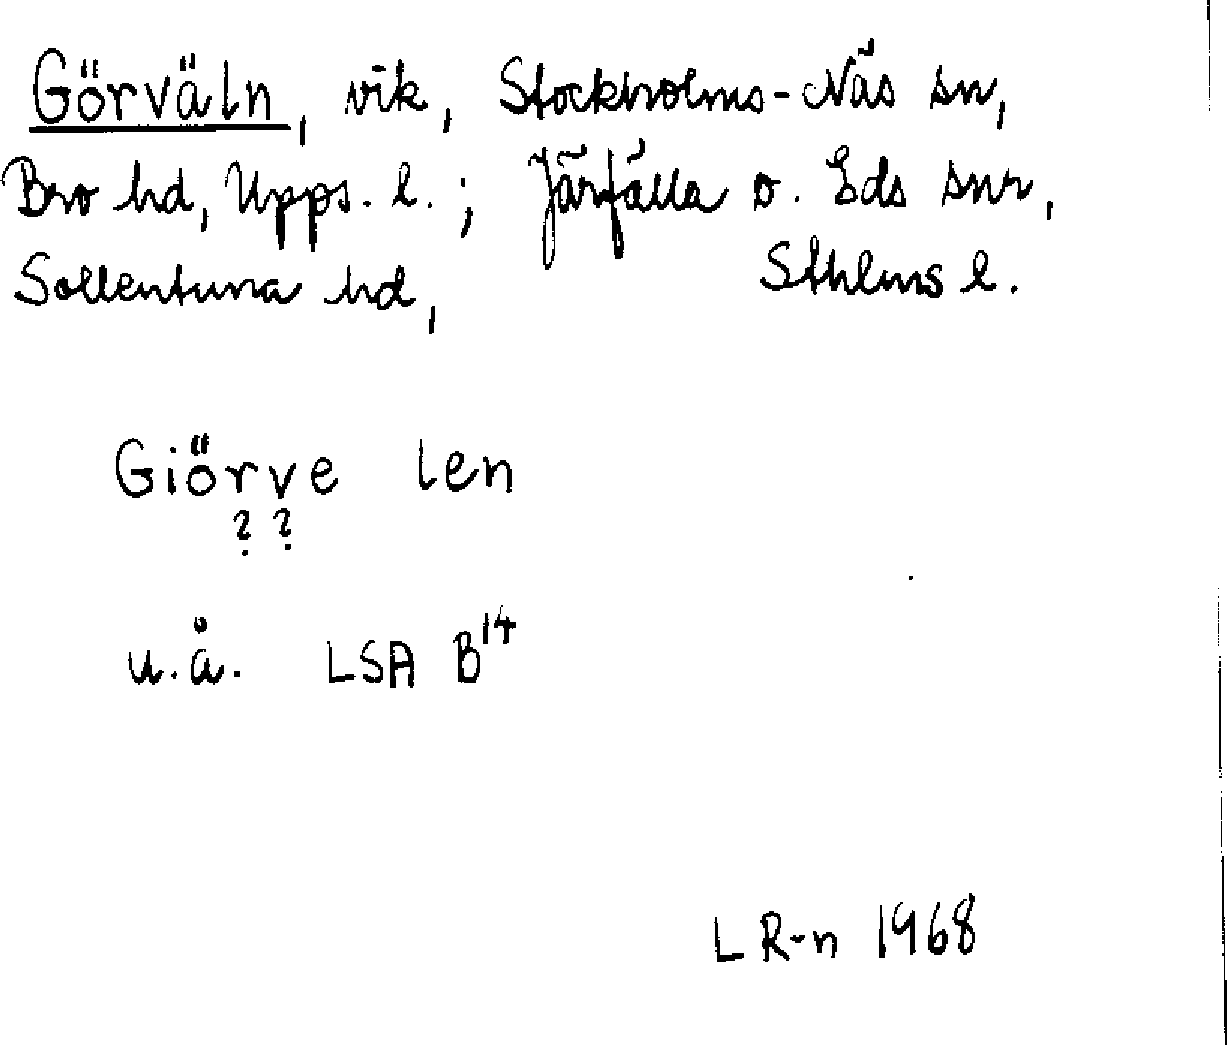 Görväln, vik, Stockholms-Näs sn,
Bro hd, Upps. l.; Järfälla o. Eds snr,
Sollentuna hd, Sthlms l.
Giörve len
? ?
u.å. LSA B14
LR-n 1968